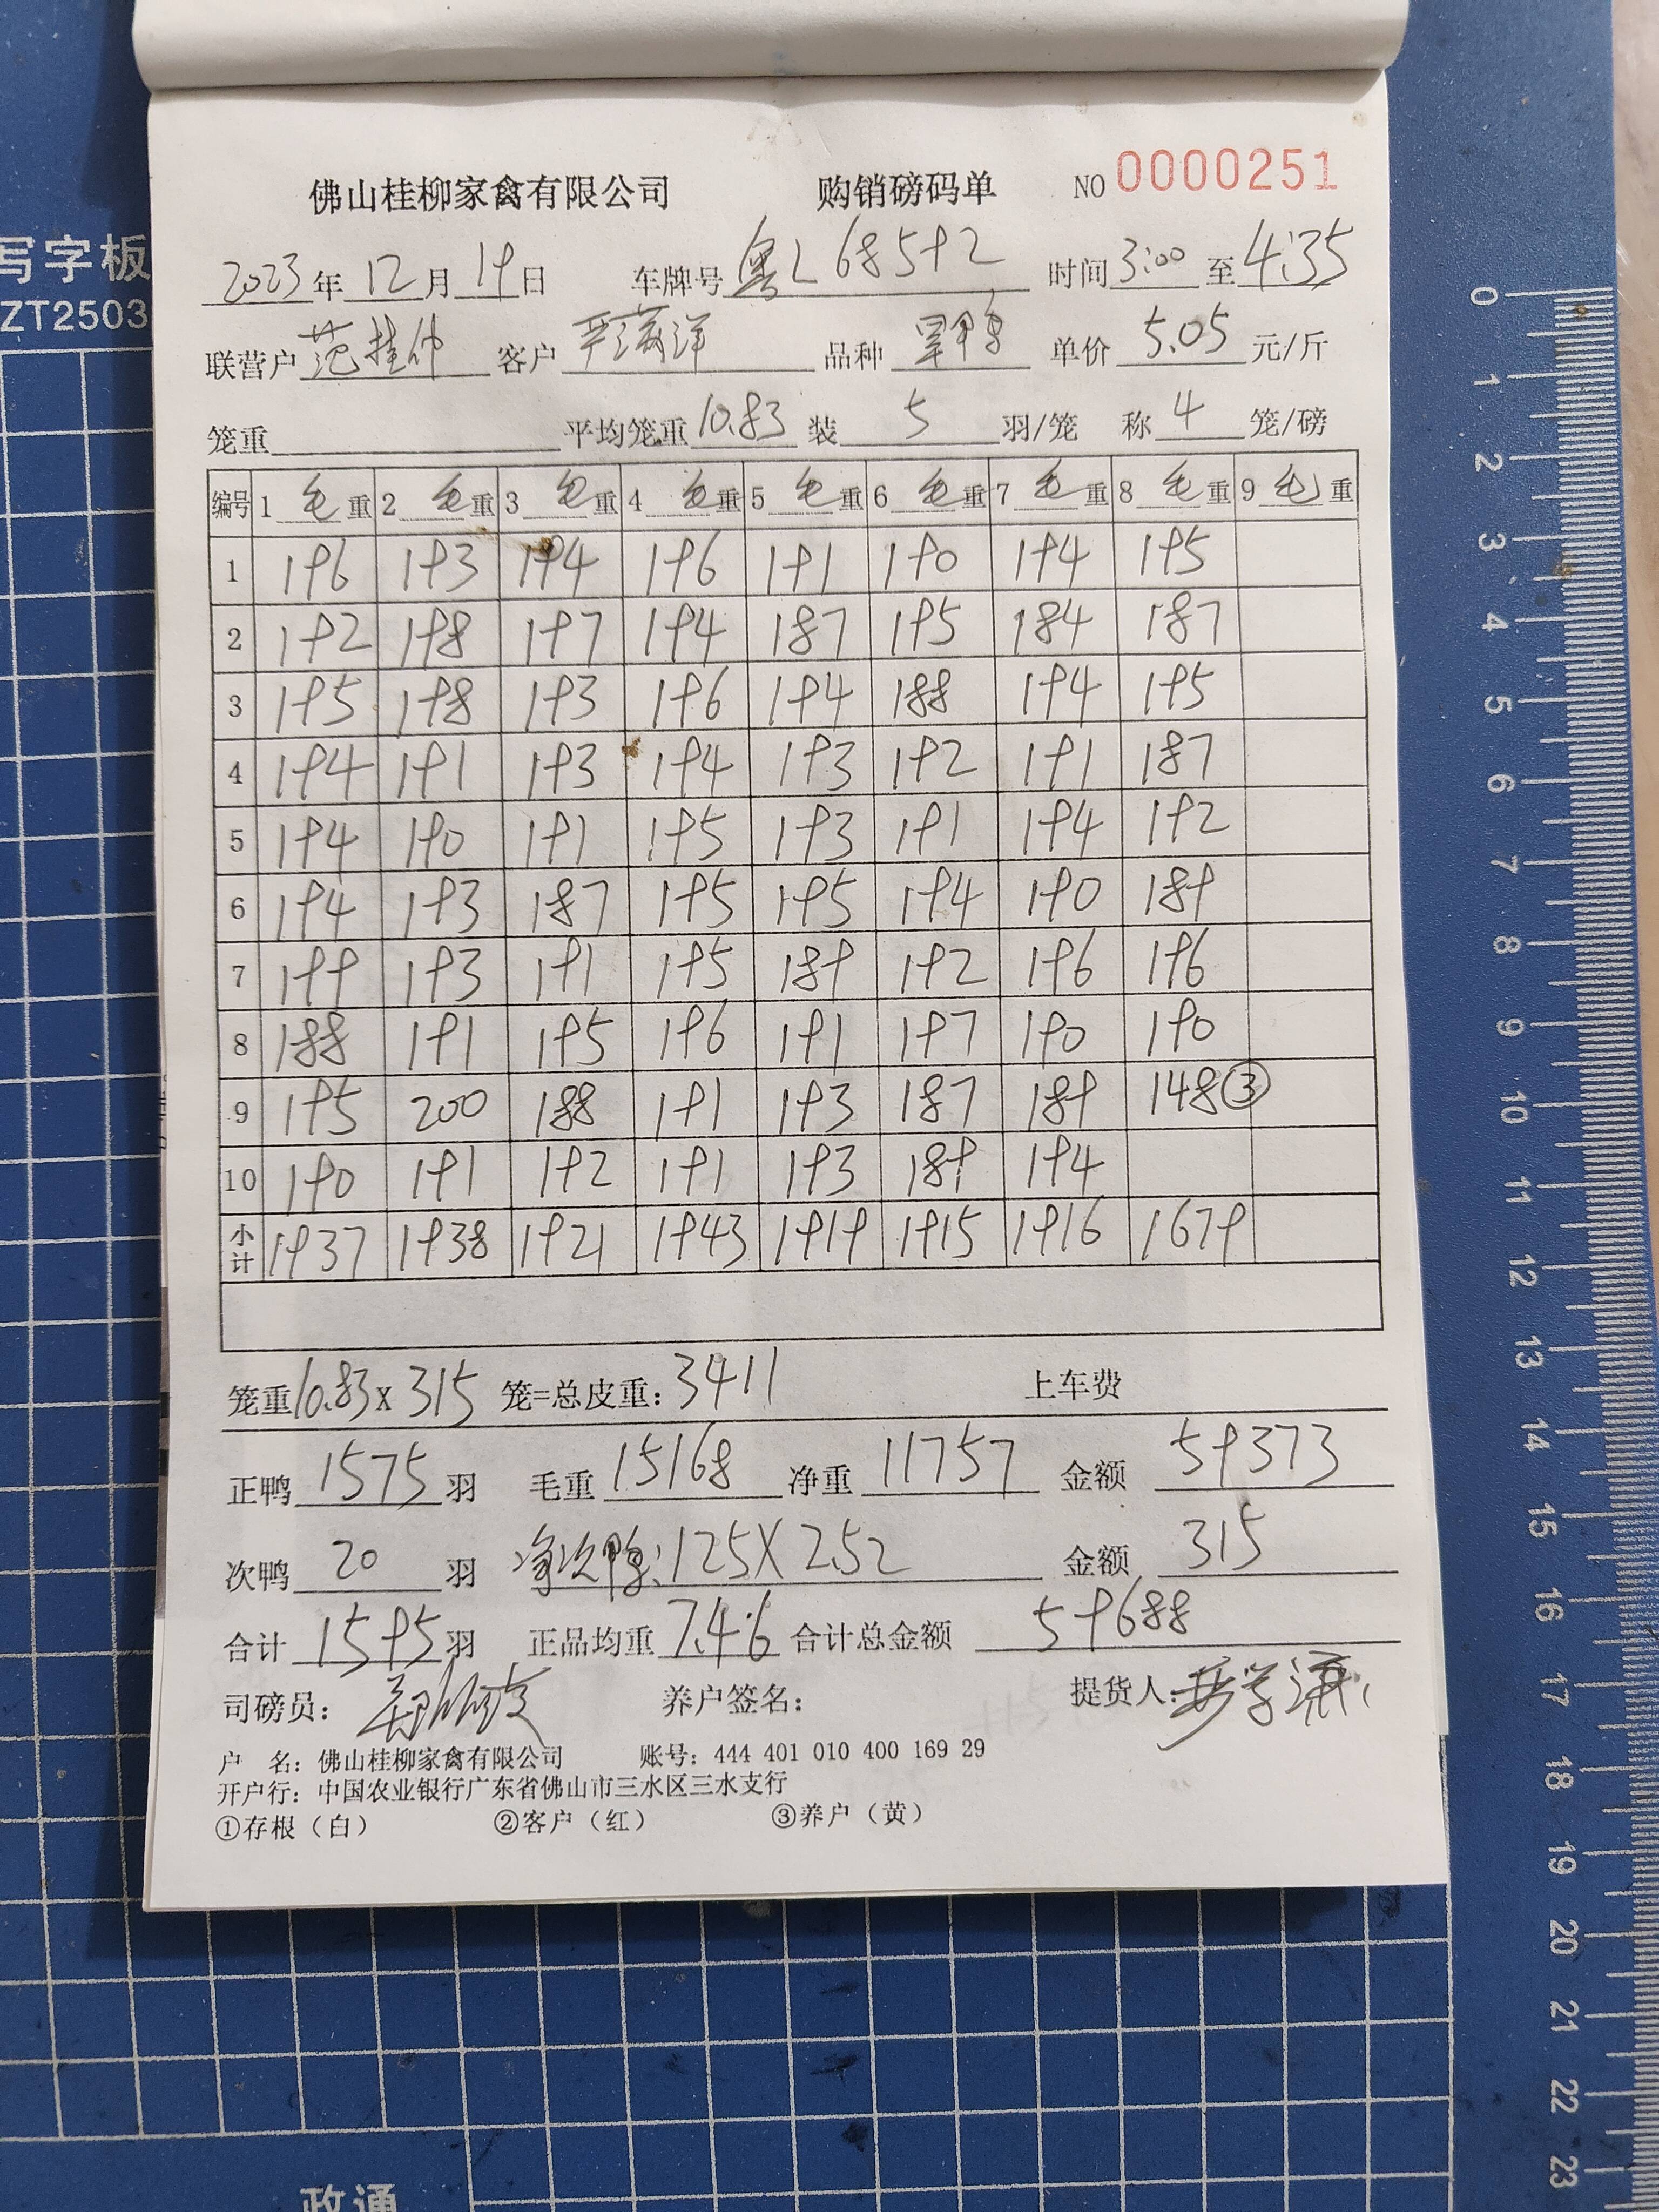 写字板
ZT2503
佛山桂柳家禽有限公司 购销磅码单 NO 0000251
2023年12月19日 车牌号 粤L 68592 时间 3:00 至 4:35
联营户 范桂仲 客户 严满洋 品种 单价 5.05 元/斤
笼重 平均笼重 10.83 装 5 羽/笼 称 4 笼/磅
编号 1 毛重 2 毛重 3 毛重 4 毛重 5 毛重 6 毛重 7 毛重 8 毛重 9 毛重
1 196 193 194 196 191 190 194 195
2 192 198 197 194 187 195 184 187
3 195 198 193 196 194 188 194 195
4 194 191 193 194 193 192 191 187
5 194 190 191 195 193 191 194 192
6 194 193 187 195 195 194 190 189
7 199 193 191 195 189 192 196 196
8 188 191 195 196 191 197 190 190
9 195 200 188 191 193 187 189 148③
10 190 191 192 191 193 189 194
小计 1937 1938 1921 1943 1919 1915 1916 1679
笼重 10.83 x 315 笼=总皮重: 3411 上车费
正鸭 1575 羽 毛重 15168 净重 11757 金额 59373
次鸭 20 羽 净次鸭: 125X2.52 金额 315
合计 1595 羽 正品均重 7.46 合计总金额 59688
司磅员: 养户签名: 提货人:
户 名: 佛山桂柳家禽有限公司 账号: 444 401 010 400 169 29
开户行: 中国农业银行广东省佛山市三水区三水支行
①存根（白） ②客户（红） ③养户（黄）
政通
0
1
2
3
4
5
6
7
8
9
10
11
12
13
14
15
16
17
18
19
20
21
22
23